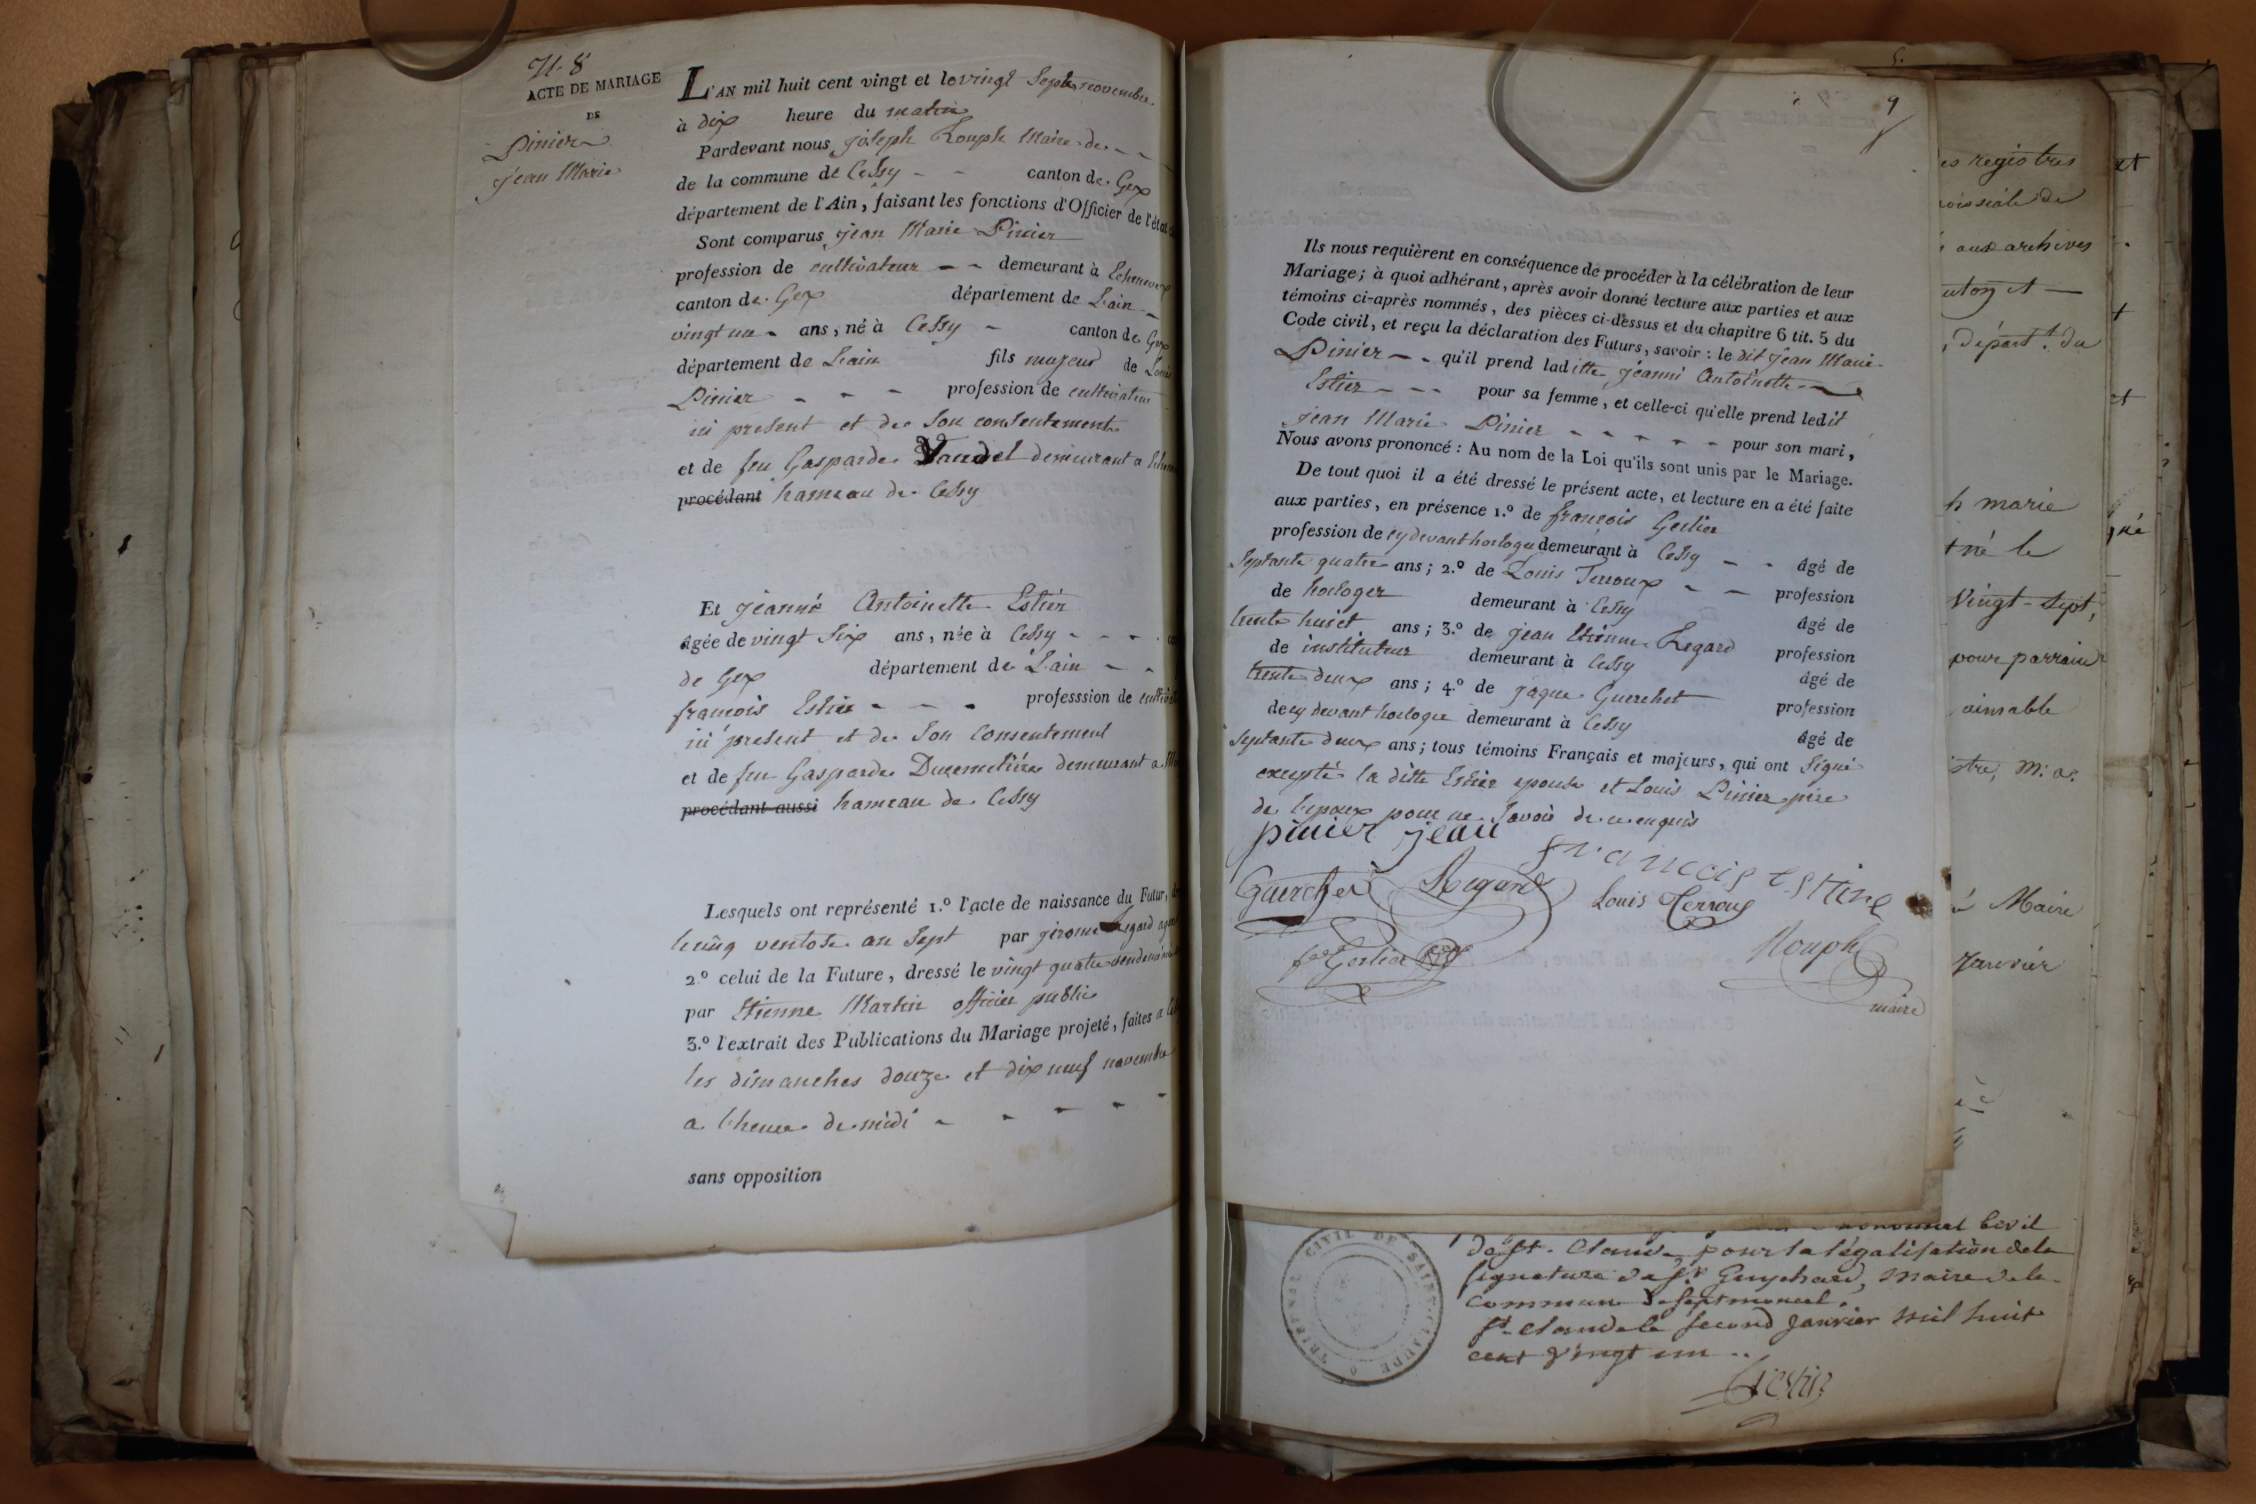 N. 8
ACTE DE MARIAGE
DE
Pinier
jean Marie
L'AN mil huit cent vingt et le vingt Sept novembre.
à dix heure du matin
Pardevant nous joseph Rouph Maire de
de la commune de Cessy canton de Gex
département de l'Ain, faisant les fonctions d'Officier de l'état
Sont comparus jean Marie Pinier
profession de cultivateur demeurant à Echenevex
canton de Gex département de Lain
vingt un ans, né à Cessy canton de Gex
département de Lain fils majeur de Louis
Pinier profession de cultivateur
ici present et de Son consentement
et de feu Gasparde Vandel demeurant a
procédant hameau de Cessy
Et jeanne Antoinette Estier
âgée de vingt Six ans, née à Cessy
de Gex département de Lain
françois Estier professsion de
ici present et de Son Consentement
et de feu Gasparde Ducemetière demeurant a
procédant aussi hameau de Cessy
Lesquels ont représenté 1.º l'acte de naissance du Futur,
le cinq ventose an Sept par jerome Regard
2.º celui de la Future, dressé le vingt quatre
par Etienne Martin officier public
3.º l'extrait des Publications du Mariage projeté, faites a
les dimanches douze et dix neuf novembre
a l'heure de midi
sans opposition
9
Ils nous requièrent en conséquence de procéder à la célébration de leur
Mariage; à quoi adhérant, après avoir donné lecture aux parties et aux
témoins ci-après nommés, des pièces ci-dessus et du chapitre 6 tit. 5 du
Code civil, et reçu la déclaration des Futurs, savoir : le dit jean Marie
Pinier qu'il prend laditte jeanne Antoinette
Estier pour sa femme, et celle-ci qu'elle prend ledit
jean Marie Pinier pour son mari,
Nous avons prononcé : Au nom de la Loi qu'ils sont unis par le Mariage.
De tout quoi il a été dressé le présent acte, et lecture en a été faite
aux parties, en présence 1.º de françois Gerlier
profession de cy devant horloger demeurant à Cessy âgé de
Septante quatre ans; 2.º de Louis Terroux profession
de horloger demeurant à Cessy âgé de
trente huiet ans; 3.º de jean Etienne Regard profession
de instituteur demeurant à Cessy âgé de
trente deux ans; 4.º de jaque Guerchet profession
de cy devant horloger demeurant à Cessy âgé de
Septante deux ans; tous témoins Français et majeurs, qui ont Signé
excepté la ditte Estier epouse et Louis Pinier père
de l'epoux pour ne Savoir de ce enquis
pinier jean
francois estier
Guerchet Regard Louis Terroux
Gerlier
Rouph
maire
es registres
aux archives
, départ.t du
h marie
né le
Vingt-sept,
pour parrain
aimable
Maire
Janvier
et
et
Civil
de St. Claude pour la légalisation de la
signature de Sr. Guychard, maire de la
commune de Septmoncel.
St. Claude le second janvier mil huit
cent vingt un
TRIBUNAL CIVIL DE SAINT-CLAUDE